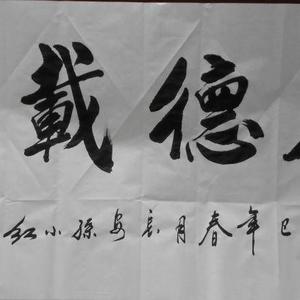 德載
巳年春月长安孫小紅